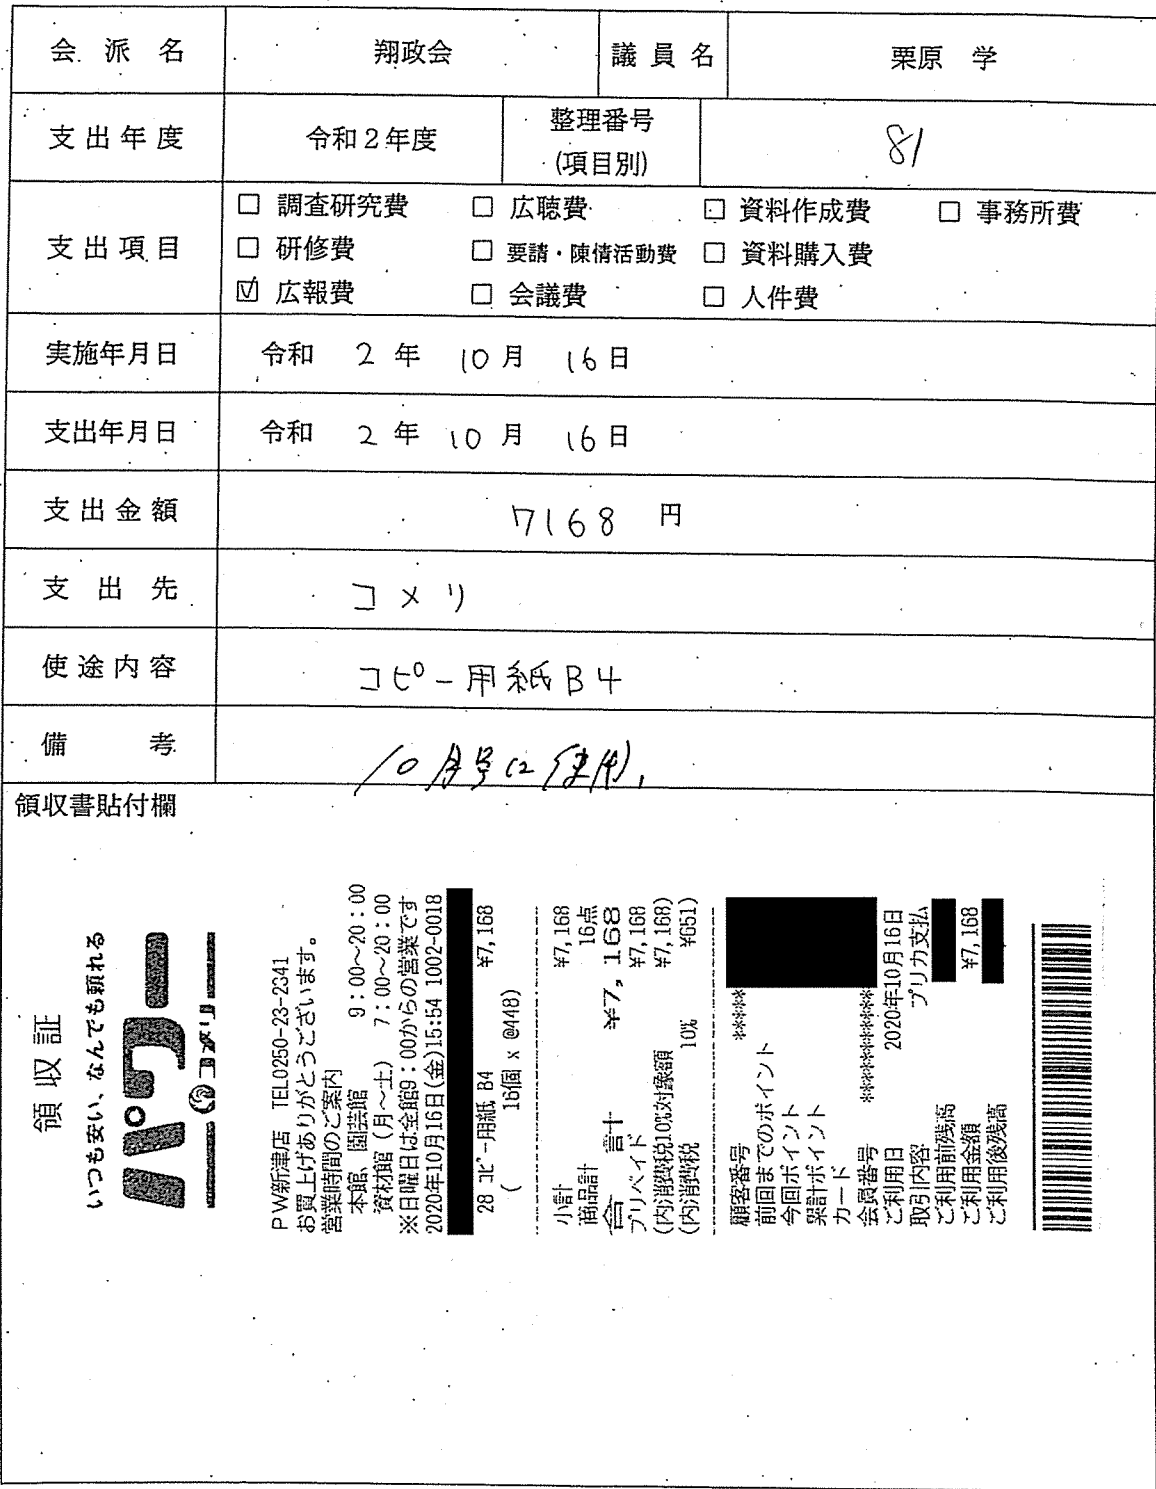 会派名 翔政会 議員名 栗原 学
支出年度 令和2年度 整理番号(項目別) 81
支出項目
□ 調査研究費 □ 広聴費 □ 資料作成費 □ 事務所費
□ 研修費 □ 要請・陳情活動費 □ 資料購入費
☑ 広報費 □ 会議費 □ 人件費
実施年月日 令和 2年 10月 16日
支出年月日 令和 2年 10月 16日
支出金額 7168 円
支出先 コメリ
使途内容 コピー用紙B4
備考 10月号に使用。
領収書貼付欄
領収証
いつも安い、なんでも頼れる
パワー
コメリ
PW新津店 TEL0250-23-2341
お買上げありがとうございます。
営業時間のご案内
本館、園芸館 9:00~20:00
資材館(月~土) 7:00~20:00
※日曜日は全館9:00からの営業です
2020年10月16日(金)15:54 1002-0018
28 コピー用紙 B4 ¥7,168
( 16個 x @448)
小計 ¥7,168
商品計 16点
合 計 ¥7,168
プリペイド ¥7,168
(内消費税10%対象額 ¥7,168)
(内消費税 10% ¥651)
顧客番号 *****
前回までのポイント
今回ポイント
累計ポイント
カード
会員番号 ************
ご利用日 2020年10月16日
取引内容 プリカ支払
ご利用前残高
ご利用金額 ¥7,168
ご利用後残高